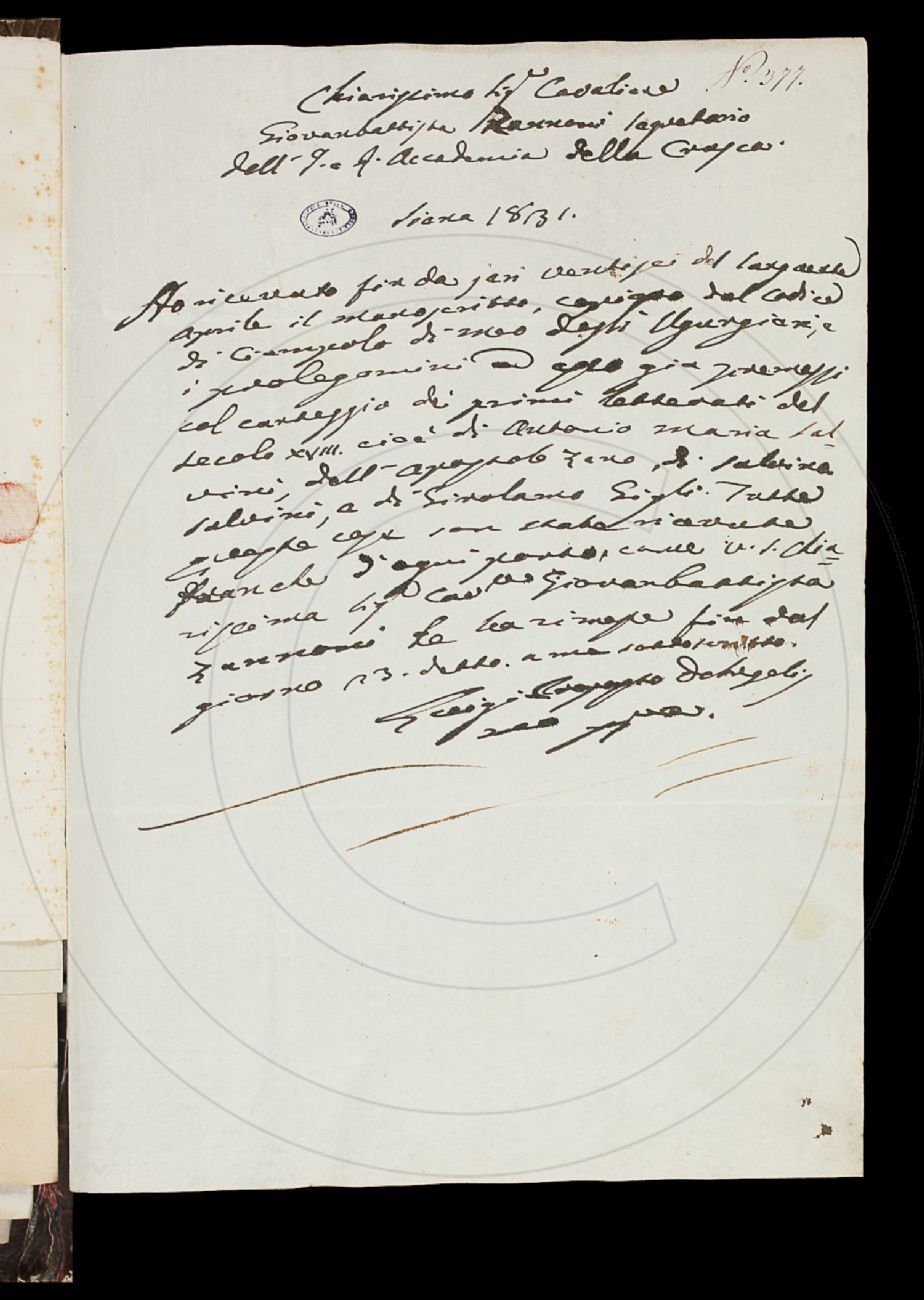 N.° 377.
Chiarissimo Sig.re Cavaliere
Giovanbattista Zannoni Segretario
dell'I. e R. Accademia della Crusca.
Siena 1831.
Ho ricevuto fin da jeri ventisei del
Aprile il manoscritto, copiato dal Codice
di Ciampolo di Meo degli Ugurgieri, e
i prolegomini ad esso già premessi
col carteggio dei primi letterati del
secolo XVIII. cioè di Antonio Maria Sal-
vini, dell'Apostolo Zeno, di Salvino
Salvini, e di Girolamo Gigli. Tutte
queste cose son state ricevute
franche di ogni porto, come V. S. Chia-
rissima Sig.r Cav.re Giovanbattista
Zannoni le ha rimesse fin dal
giorno 23. detto. a me sottoscritto.
Luigi De Angelis